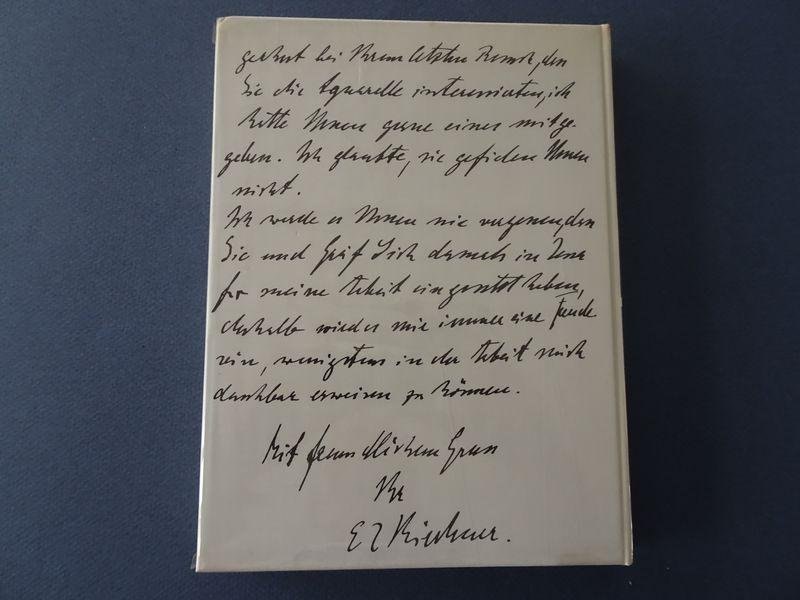 bei Ihrem letzten Besuch, den
Sie die Aquarelle interessierten, ich
hätte Ihnen gerne eines mitge-
geben. Ich glaubte, sie gefielen Ihnen
nicht.
Ich werde es Ihnen nie vergessen, den
Sie und Gräf sich damals in Jena
für meine Arbeit eingesetzt haben,
deshalb wird es mir immer eine Freude
sein, wenigstens in der Arbeit mich
dankbar erweisen zu können.
Mit freundlichem Gruss
Ihr
E L Kirchner.